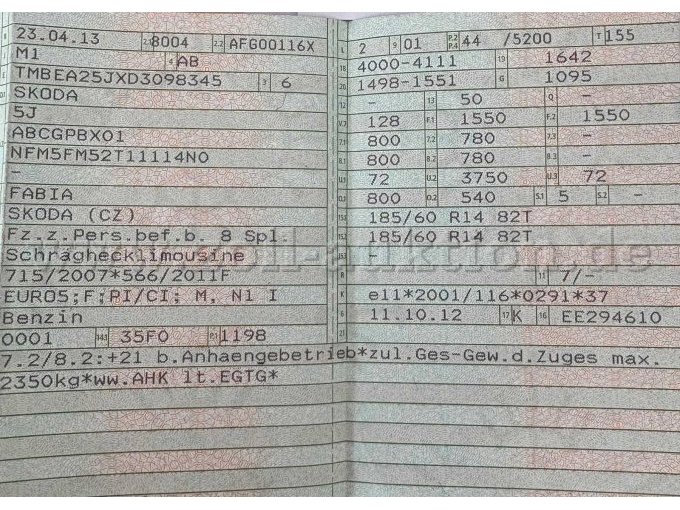 B 23.04.13 2.1 8004 2.2 AFG00116X
M1 4 AB
TMBEA25JXD3098345 3 6
SKODA
5J
ABCGPBX01
NFM5FM52T11114N0
-
FABIA
SKODA (CZ)
Fz.z.Pers.bef.b. 8 Spl.
Schräghecklimousine
715/2007*566/2011F
EURO5;F;PI/CI; M, N1 I
Benzin
0001 14.1 35F0 P.1 1198
L 2 9 01 P.2 P.4 44 /5200 T 155
18 4000-4111 19 1642
20 1498-1551 G 1095
- 13 50 Q -
V.7 128 F.1 1550 F.2 1550
7.1 800 7.2 780 7.3 -
8.1 800 8.2 780 8.3 -
U.1 72 U.2 3750 U.3 72
O.1 800 O.2 540 S.1 5 S.2 -
15.1 185/60 R14 82T
15.2 185/60 R14 82T
15.3 -
R 11 7/-
K e11*2001/116*0291*37
6 11.10.12 17 K 16 EE294610
21
7.2/8.2:+21 b.Anhaengebetrieb*zul.Ges-Gew.d.Zuges max.
2350kg*ww.AHK lt.EGTG*